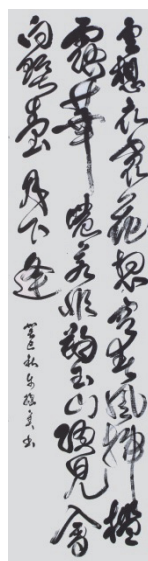 雲想衣裳花想容春風拂檻
露華濃若非群玉山頭見會
向瑤臺月下逢
癸巳秋書